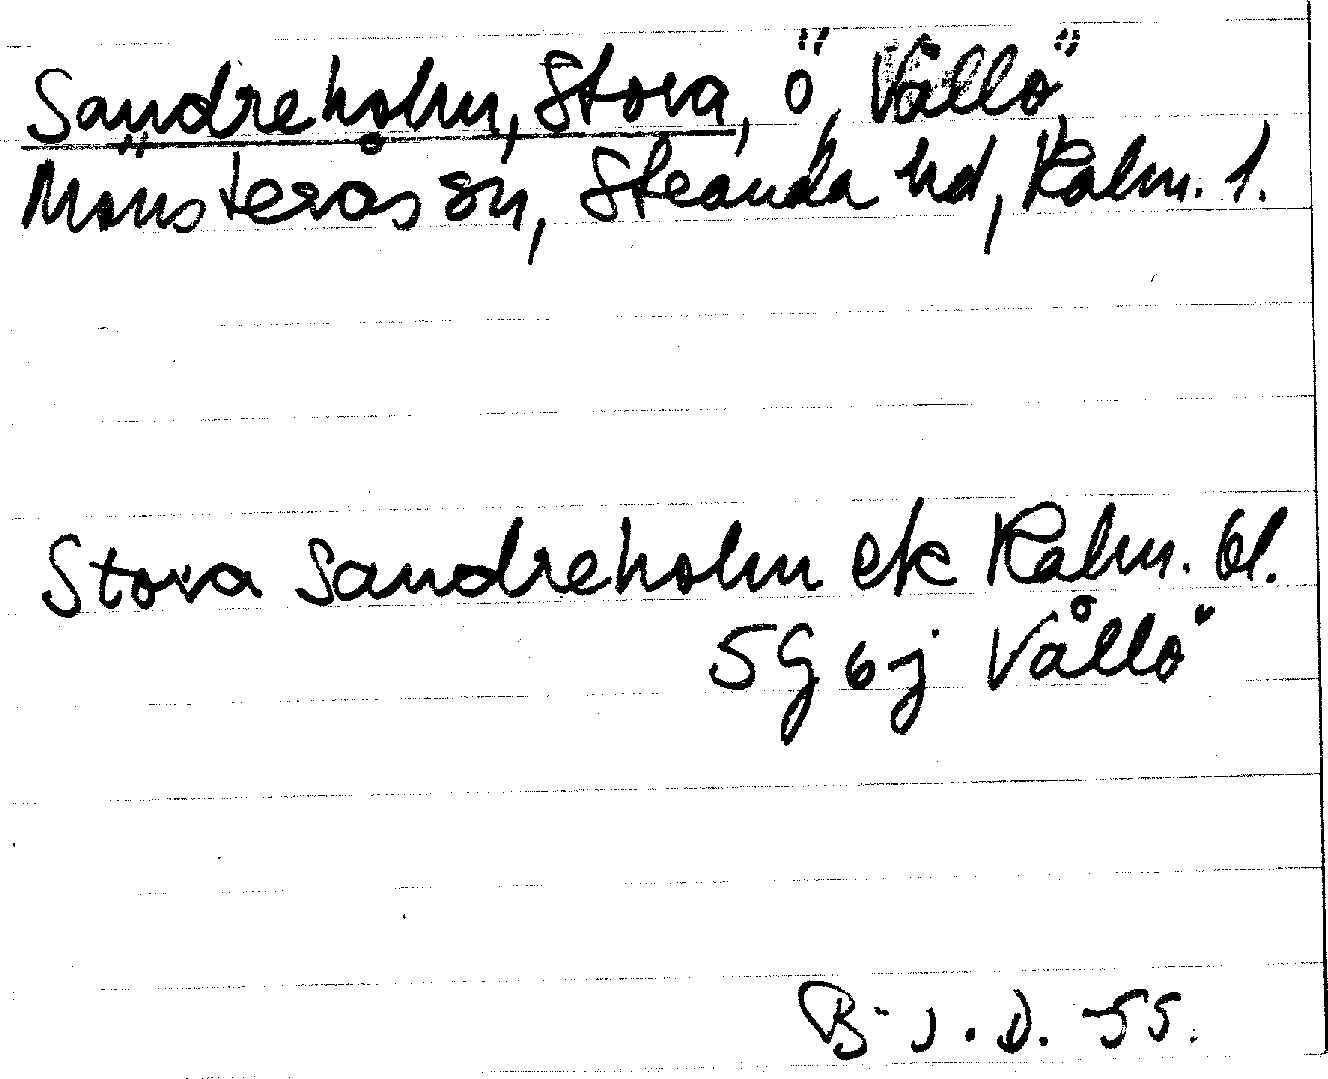 Sandreholm, Stora, ö, Vållö,
Mönsterås sn, Stranda hd, Kalm. l.
Stora Sandreholm ek Kalm. bl.
5G 6j Vållö
B-J.D. -55.